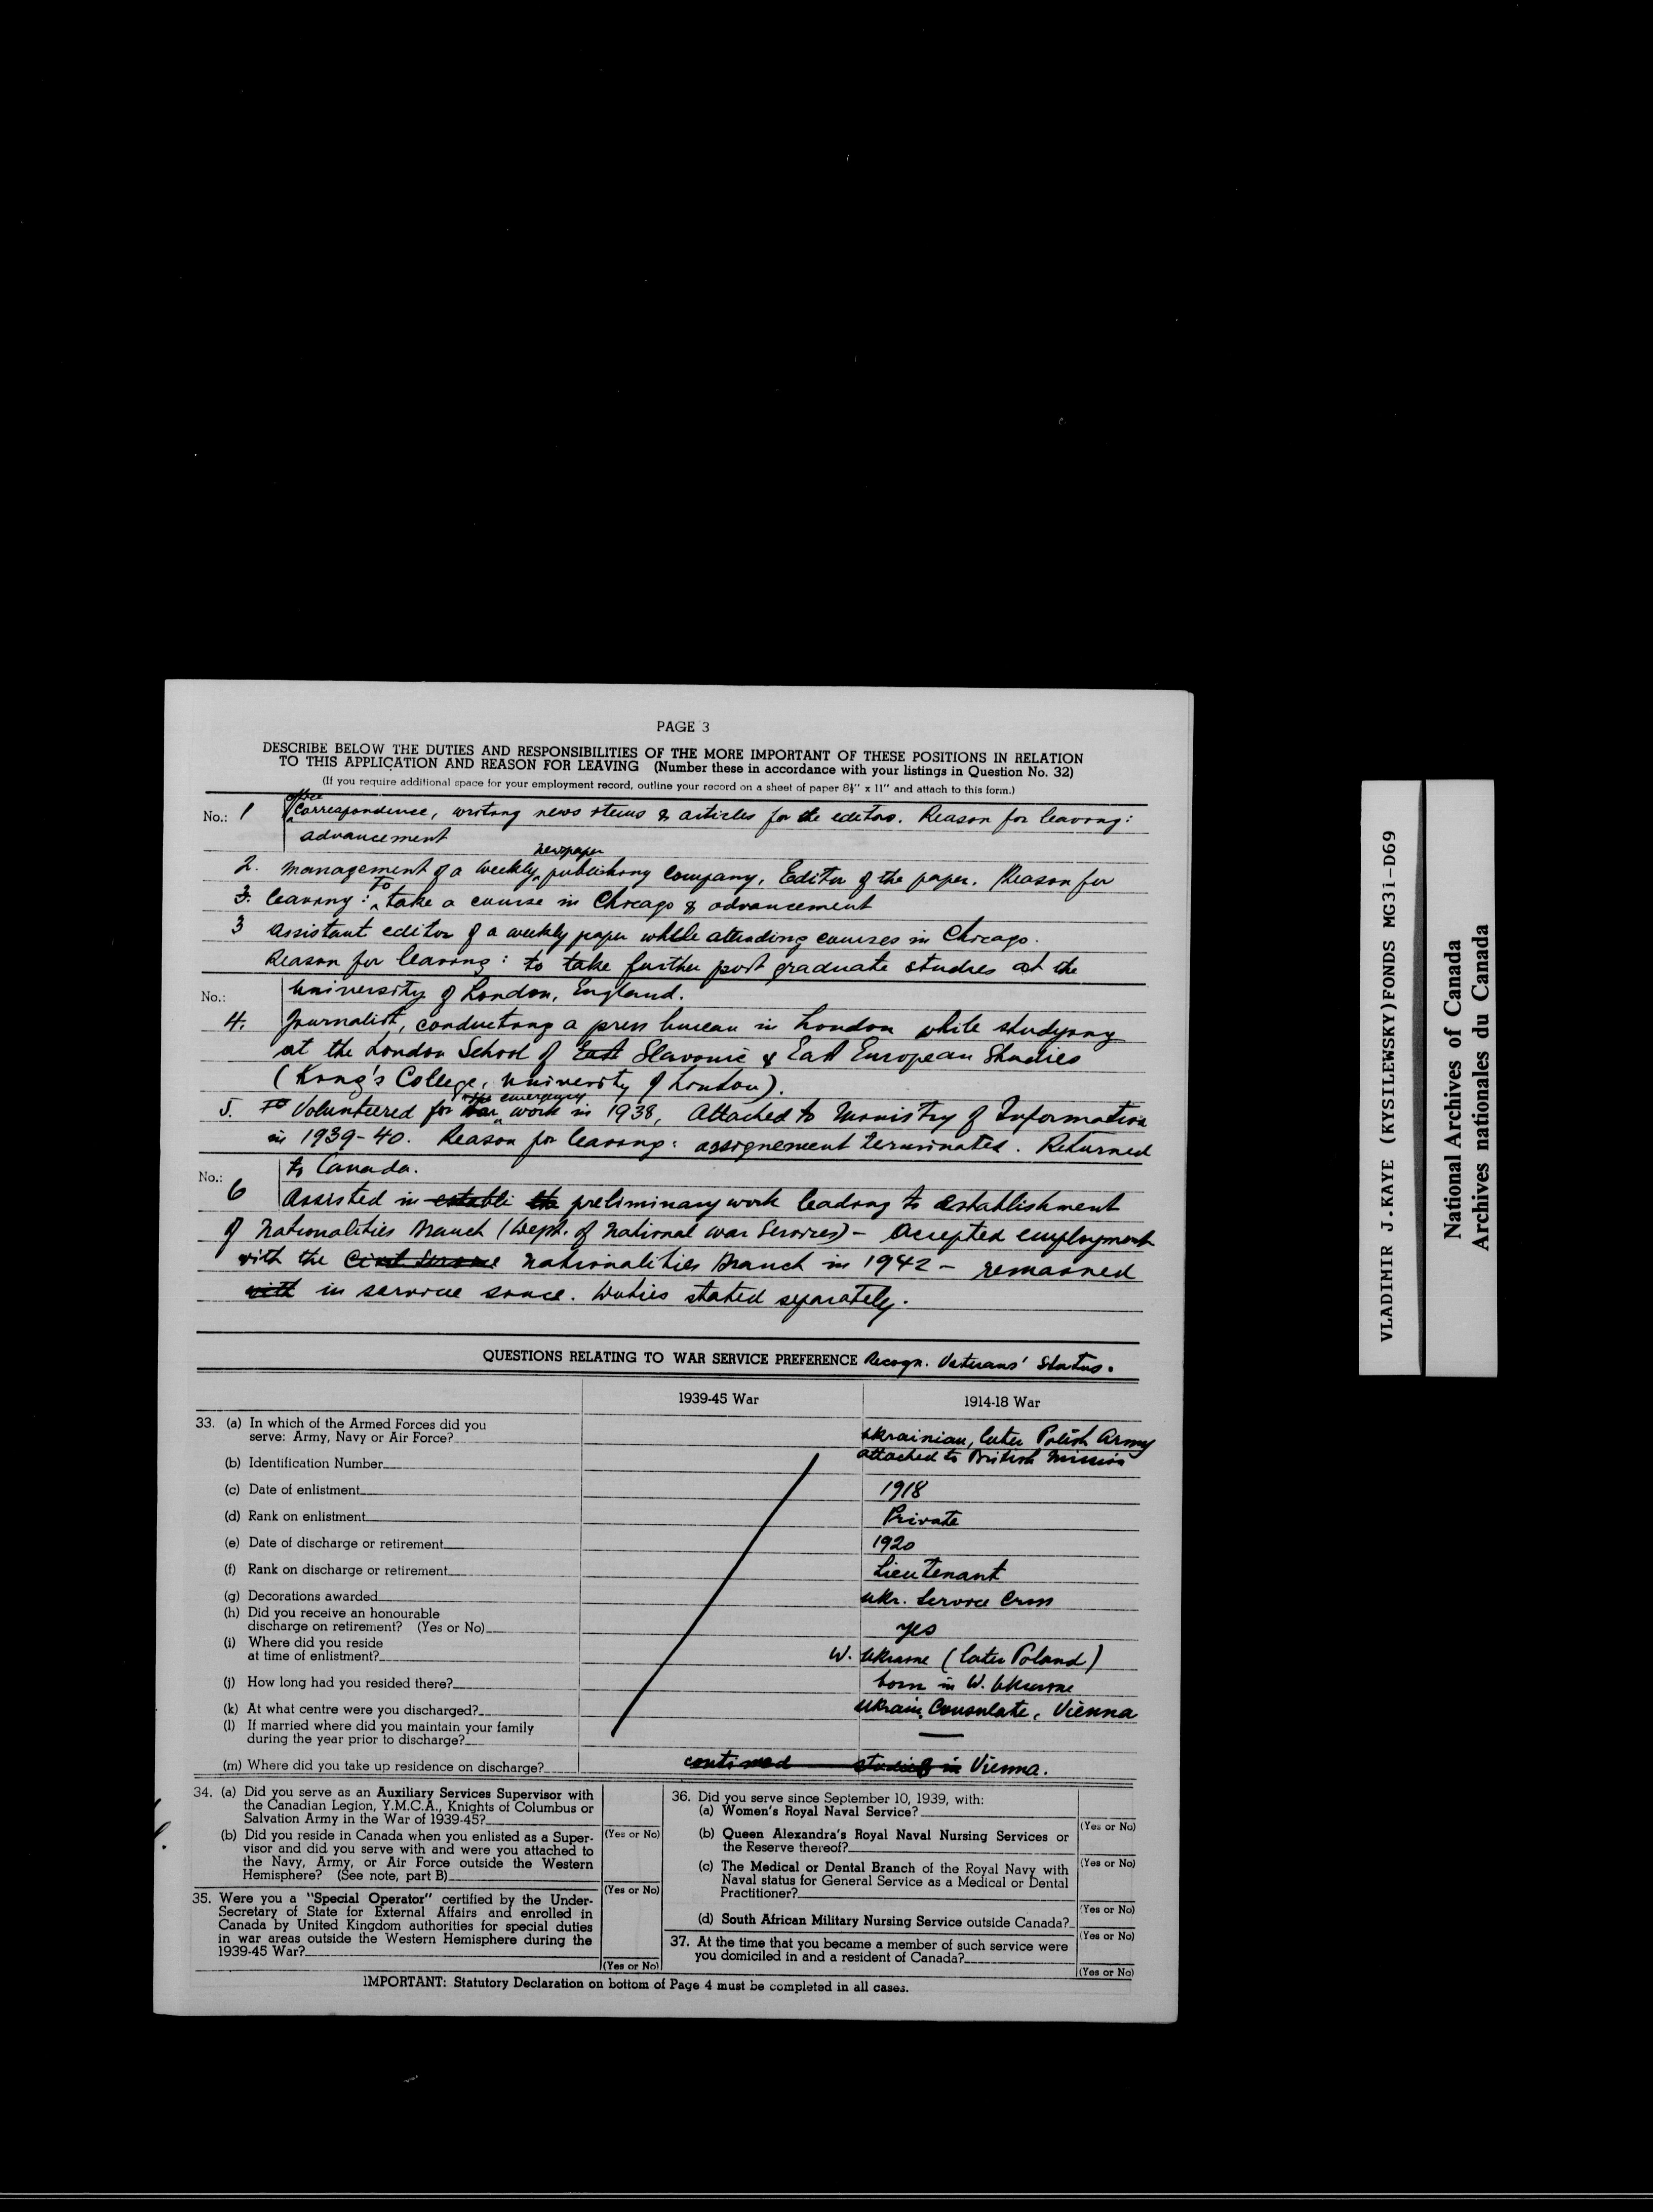 PAGE 3
DESCRIBE BELOW THE DUTIES AND RESPONSIBILITIES OF THE MORE IMPORTANT OF THESE POSITIONS IN RELATION
TO THIS APPLICATION AND REASON FOR LEAVING (Number these in accordance with your listings in Question No. 32)
(If you require additional space for your employment record, outline your record on a sheet of paper 8½" x 11" and attach to this form.)
office
No.: 1 Correspondence, writing news items & articles for the editors. Reason for leaving:
advancement
newspaper
2. Management of a weekly publishing Company, Editor of the paper. Reason for
To
3. leaving: take a course in Chicago & advancement
3 Assistant editor of a weekly paper while attending courses in Chicago.
Reason for leaving: to take further post graduate studies at the
No.: University of London, England.
4. Journalist, conducting a press bureau in London while studying
at the London School of East Slavonic & East European Studies
(King's College, University of London).
the emergency
5. To Volunteered for war work in 1938, Attached to Ministry of Information
in 1939-40. Reason for leaving: assignement terminated. Returned
No.: to Canada.
6 Assisted in establi the preliminary work leading to establishment
of Nationalities Branch (Dept. of National War Services) - Accepted employment
with the Civil Service Nationalities Branch in 1942 - remained
with in service since. Duties stated separately.
QUESTIONS RELATING TO WAR SERVICE PREFERENCE Recogn. Veterans' Status.
1939-45 War 1914-18 War
33. (a) In which of the Armed Forces did you
serve: Army, Navy or Air Force? Ukrainian, later Polish Army
attached to British Mission
(b) Identification Number
(c) Date of enlistment 1918
(d) Rank on enlistment Private
(e) Date of discharge or retirement 1920
(f) Rank on discharge or retirement Lieutenant
(g) Decorations awarded Ukr. Service Cross
(h) Did you receive an honourable
discharge on retirement? (Yes or No) yes
(i) Where did you reside
at time of enlistment? W. Ukraine (later Poland)
(j) How long had you resided there? born in W. Ukraine
(k) At what centre were you discharged? Ukrain. Consulate, Vienna
(l) If married where did you maintain your family
during the year prior to discharge? —
(m) Where did you take up residence on discharge? continued studies in Vienna.
34. (a) Did you serve as an Auxiliary Services Supervisor with
the Canadian Legion, Y.M.C.A., Knights of Columbus or
Salvation Army in the War of 1939-45?
(Yes or No)
(b) Did you reside in Canada when you enlisted as a Super-
visor and did you serve with and were you attached to
the Navy, Army, or Air Force outside the Western
Hemisphere? (See note, part B)
(Yes or No)
35. Were you a "Special Operator" certified by the Under-
Secretary of State for External Affairs and enrolled in
Canada by United Kingdom authorities for special duties
in war areas outside the Western Hemisphere during the
1939-45 War?
(Yes or No)
36. Did you serve since September 10, 1939, with:
(a) Women's Royal Naval Service?
(Yes or No)
(b) Queen Alexandra's Royal Naval Nursing Services or
the Reserve thereof?
(Yes or No)
(c) The Medical or Dental Branch of the Royal Navy with
Naval status for General Service as a Medical or Dental
Practitioner?
(Yes or No)
(d) South African Military Nursing Service outside Canada?
(Yes or No)
37. At the time that you became a member of such service were
you domiciled in and a resident of Canada?
(Yes or No)
IMPORTANT: Statutory Declaration on bottom of Page 4 must be completed in all cases.
VLADIMIR J.KAYE (KYSILEWSKY)FONDS MG31-D69
National Archives of Canada
Archives nationales du Canada